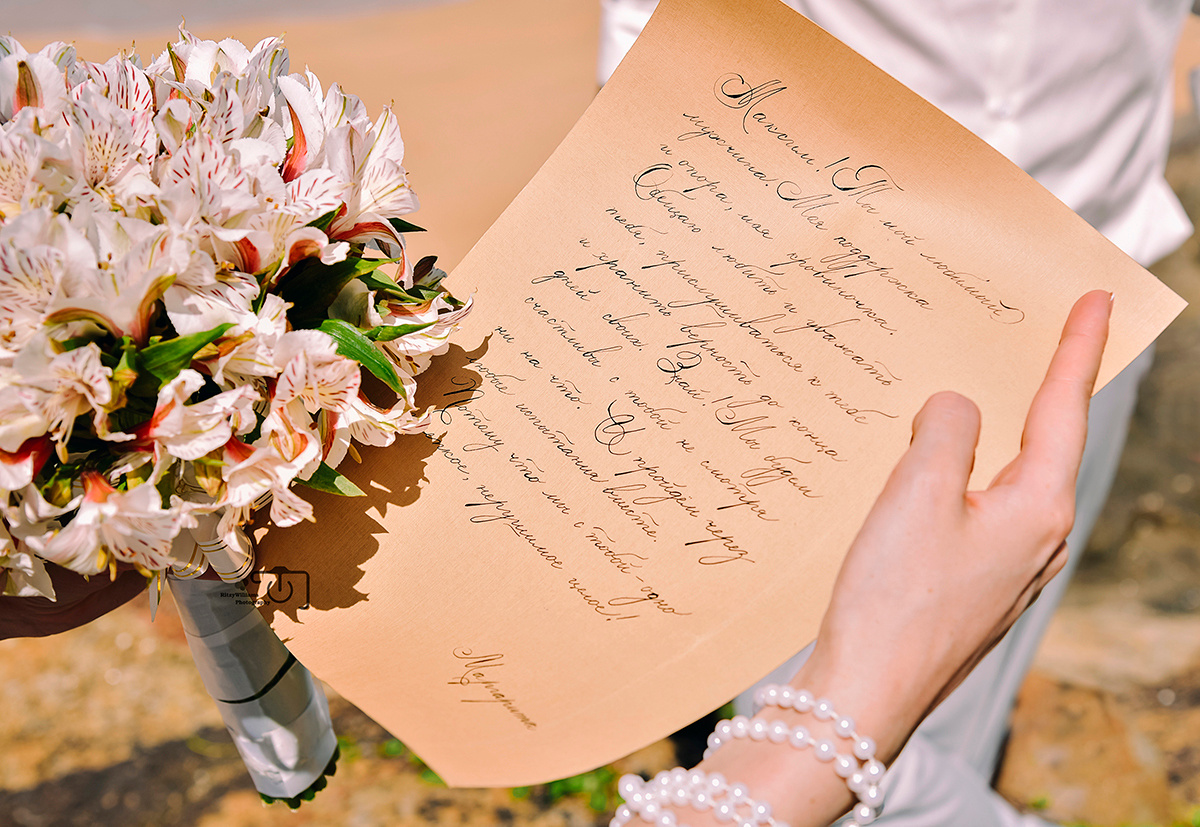 Максим! Ты мой любимый
мужчина. Моя поддержка
и опора, моя кровиночка.
Обещаю любить и уважать
тебя, прислушиваться к тебе
и хранить верность до конца
дней своих. Знай! Мы будем
счастливы с тобой не смотря
ни на что. И пройдём через
любые испытания вместе.
Потому что мы с тобой-одно
нерушимое целое!
Маргарита
RitzyWilliams
Photography